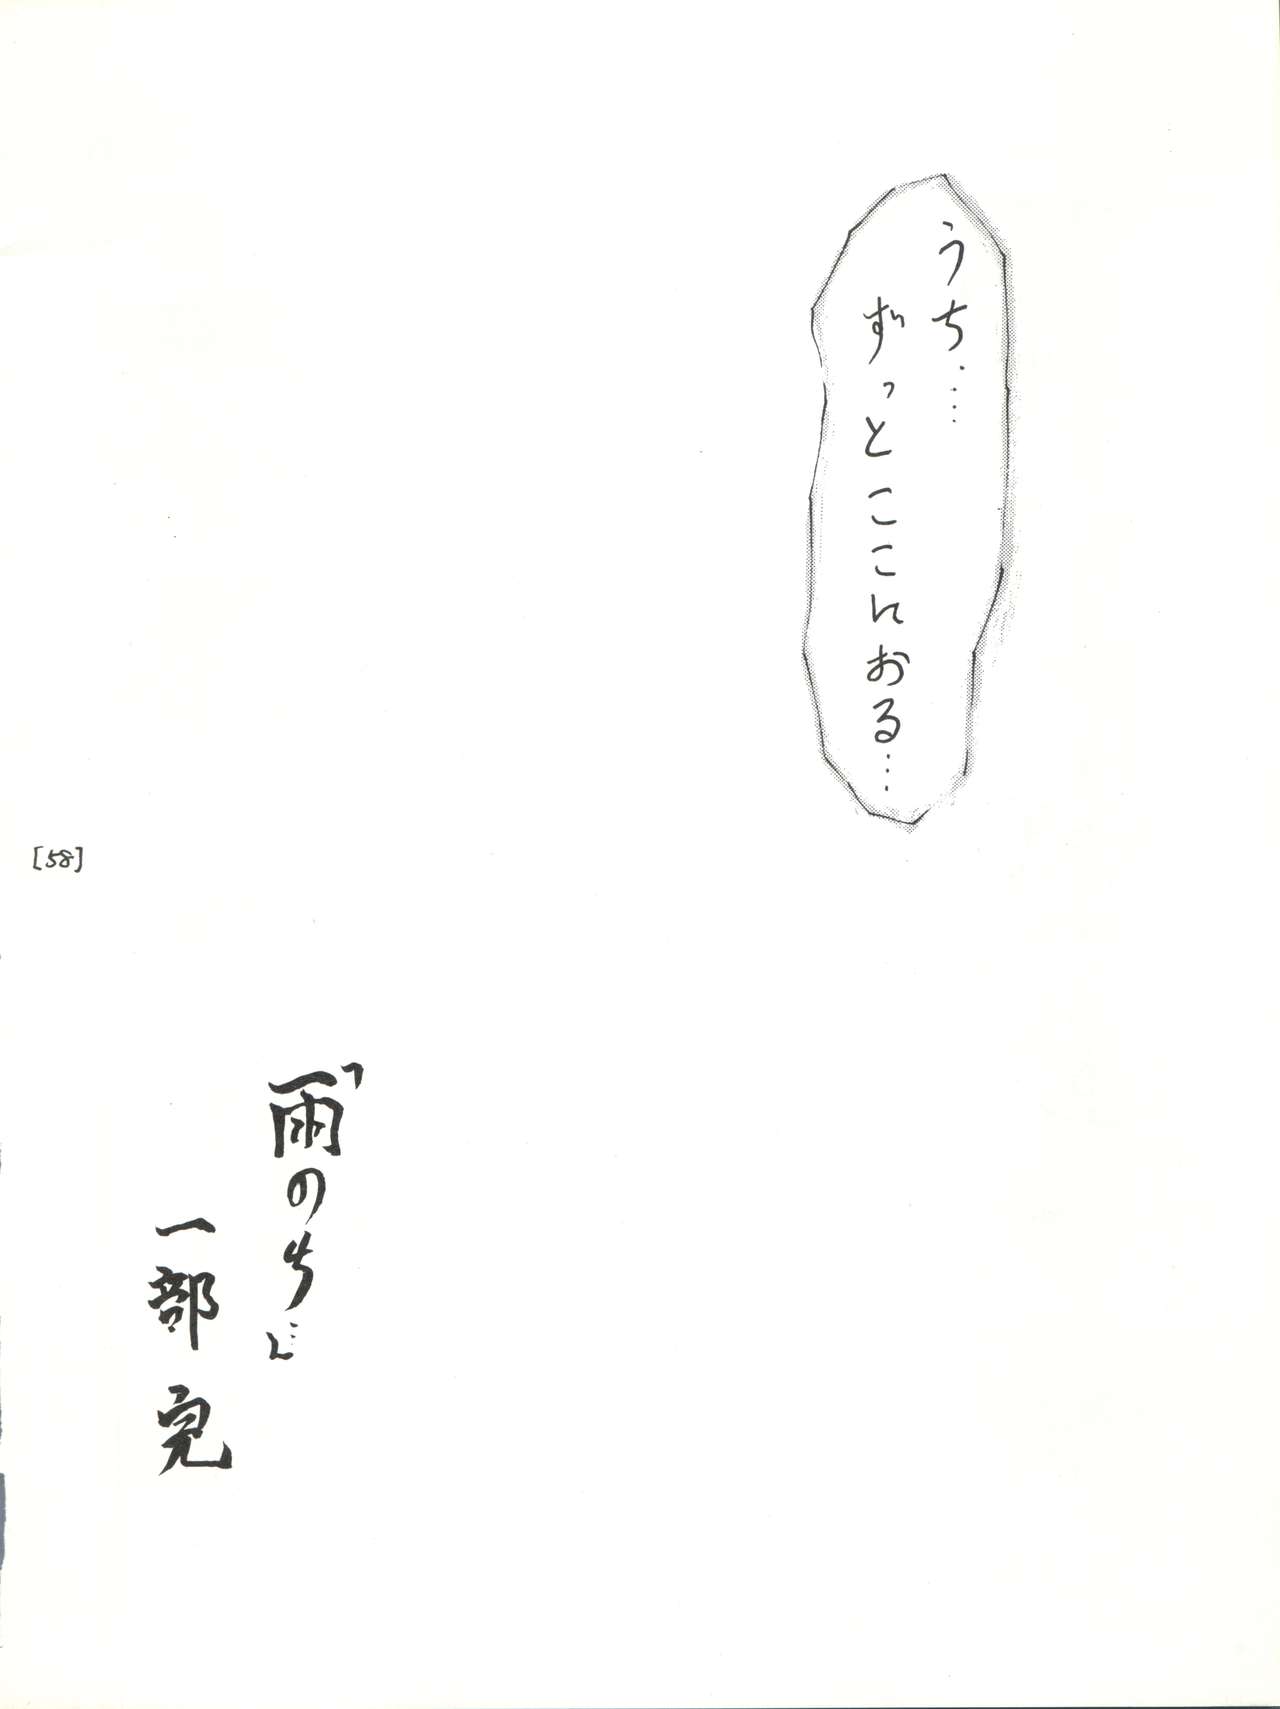 うち‥‥
ずっとここにおる…
[58]
「雨のち…」
一部 完